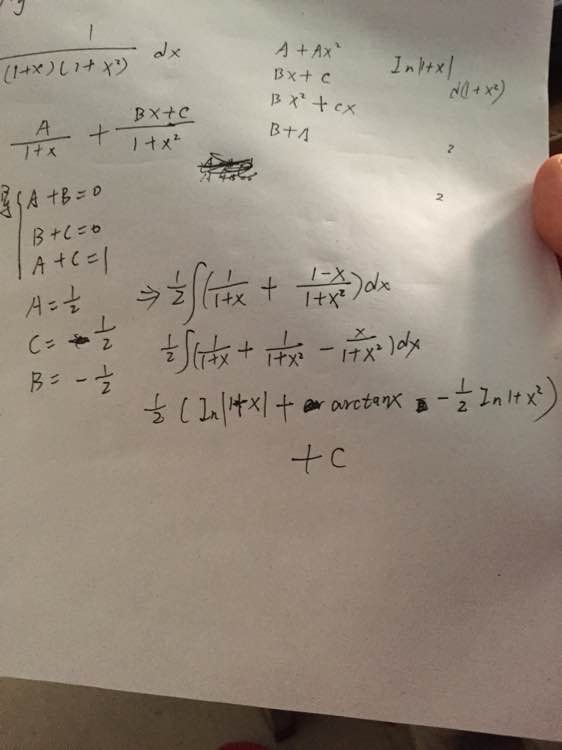 1/((1+x)(1+x²)) dx
A/(1+x) + (Bx+C)/(1+x²)
A + Ax²
Bx + C
Bx² + cx
B + A
In|1+x|
d(1+x²)
2
2
得 { A+B=0
B+C=0
A+C=1
A = 1/2
C = 1/2
B = -1/2
⇒ 1/2 ∫(1/(1+x) + (1-x)/(1+x²))dx
1/2 ∫(1/(1+x) + 1/(1+x²) - x/(1+x²))dx
1/2 (In|1+x| + arctanx - 1/2 In1+x²)
+ C